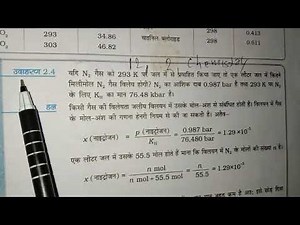 O₂ 293 34.86 वाइनिल क्लोराइड 0.611
O₂ 303 46.82
12, 2 Chemistry
उदाहरण 2.4 यदि N₂ गैस को 293 K पर जल में से प्रवाहित किया जाए तो एक लीटर जल में कितने
मिलीमोल N₂ गैस विलेय होगी? N₂ का आंशिक दाब 0.987 bar है तथा 293 K पर N₂
के लिए K_H मान 76.48 kbar है।
हल किसी गैस की विलेयता जलीय विलयन में उसके मोल-अंश से संबंधित होती है। विलयन में गैस
के मोल-अंश की गणना हेनरी नियम से की जा सकती है। अतः–
x (नाइट्रोजन) = p (नाइट्रोजन) / K_H = 0.987 bar / 76,480 bar = 1.29×10⁻⁵
एक लीटर जल में उसके 55.5 मोल होते हैं माना कि विलयन में N₂ के मोलों की संख्या n है।
x (नाइट्रोजन) = n mol / (n mol + 55.5 mol) = n / 55.5 = 1.29×10⁻⁵